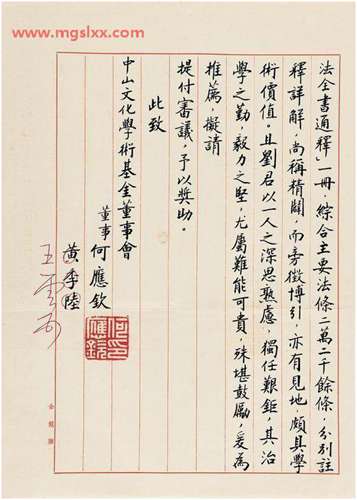 www.mgslxx.com
法全書通釋」一冊，綜合主要法條二萬二千餘條，分別註
釋詳解，尚稱精闢，而旁徵博引，亦有見地，頗具學
術價值。且劉君以一人之深思熟慮，獨任艱鉅，其治
學之勤，毅力之堅，尤屬難能可貴，殊堪鼓勵，爰為
推薦，擬請
提付審議，予以獎助。
此致
中山文化學術基金董事會
董事 何應欽
何應欽印
黃季陸
王雲五